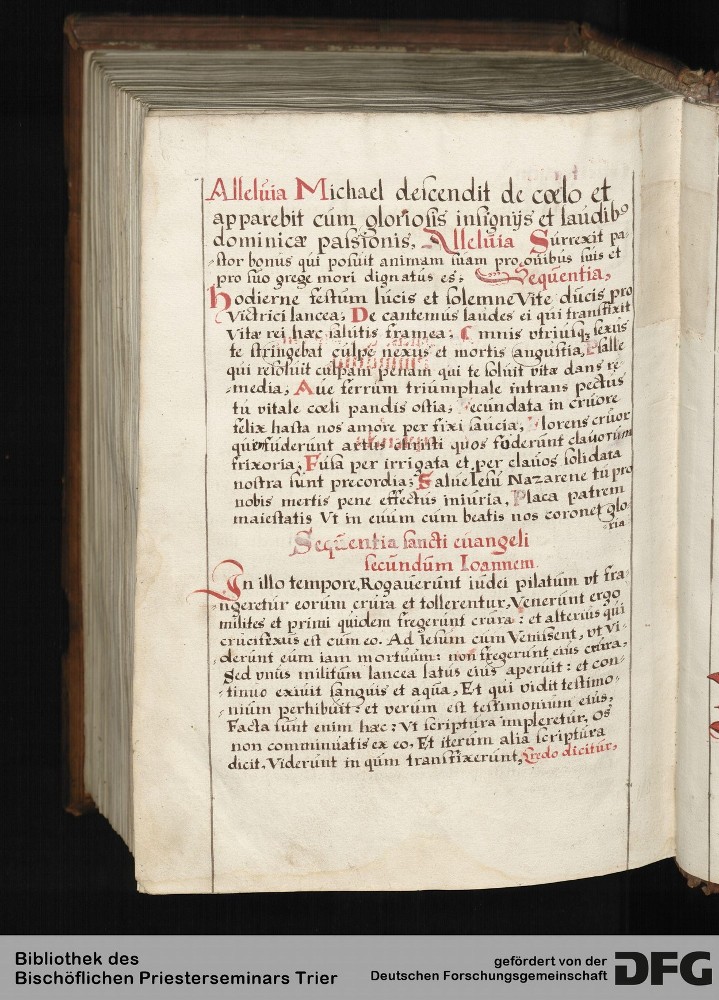 Alleluia Michael descendit de cœlo et
apparebit cum gloriosis insignijs et laudib⁹
dominicæ passionis, Alleluia Surrexit pa-
stor bonus qui posuit animam suam pro ouibus suis et
pro suo grege mori dignatus es; Sequentia,
Hodierne festum lucis et solemne Vite ducis pro
Victrici lancea; De cantemus laudes ei qui transfixit
Vitæ rei hæc salutis framea; Omnis vtriusq; sexus
te stringebat culpe nexus et mortis angustia, Psalle
qui resoluit culpam penam qui te soluit vitæ dans re-
-media; Aue ferrum triumphale intrans pectus
tu vitale cœli pandis ostia; Fecundata in cruore
felix hasta nos amore per fixi saucia, Florens cruor
quem fuderunt artus christi quos foderunt clauorum
frixoria; Fusa per irrigata et per clauos solidata
nostra sunt precordia; Salue Iesu Nazarene tu pro
nobis mertis pene effectus iniuria, Placa patrem
maiestatis Vt in euum cum beatis nos coronet glo-
-ria
Sequentia sancti euangeli
secundum Ioannem.
In illo tempore, Rogauerunt iudei pilatum vt fra-
-ngeretur eorum crura et tollerentur, Venerunt ergo
milites et primi quidem fregerunt crura: et alterius qui
crucifexus est cum eo. Ad Iesum cum Venissent, vt vi-
-derunt eum iam mortuum: non fregerunt eius crura,
Sed vnus militum lancea latus eius aperuit: et con-
-tinuo exiuit sanguis et aqua, Et qui vidit testimo-
-nium perhibuit: et verum est testimonium eius,
Facta sunt enim hæc: Vt scriptura impleretur, Os
non comminuatis ex eo, Et iterum alia scriptura
dicit, Viderunt in qum transfixerunt, Credo dicitur,
Bibliothek des
Bischöflichen Priesterseminars Trier
gefördert von der
Deutschen Forschungsgemeinschaft
DFG